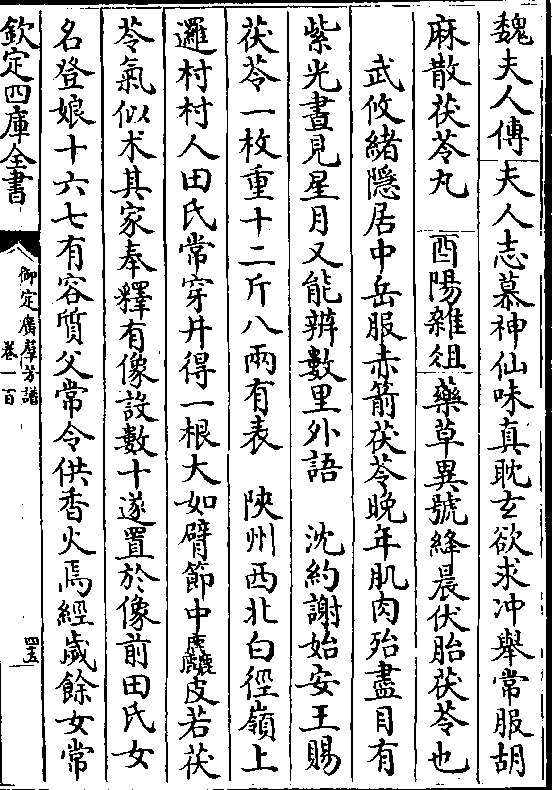 魏夫人傳夫人志慕神仙味真耽玄欲求冲舉常服胡
麻散茯苓丸　酉陽雜俎藥草異號絳晨伏胎茯苓也
武攸緒隱居中岳服赤箭茯苓晚年肌肉殆盡目有
紫光晝見星月又能辨數里外語　沈約謝始安王賜
茯苓一枚重十二斤八兩有表　陜州西北白徑嶺上
邏村村人田氏常穿井得一根大如臂節中麤皮若茯
苓氣似术其家奉釋有像設數十遂置於像前田氏女
名登娘十六七有容質父常令供香火焉經歲餘女常
欽定四庫全書
御定廣羣芳譜
卷一百
四五